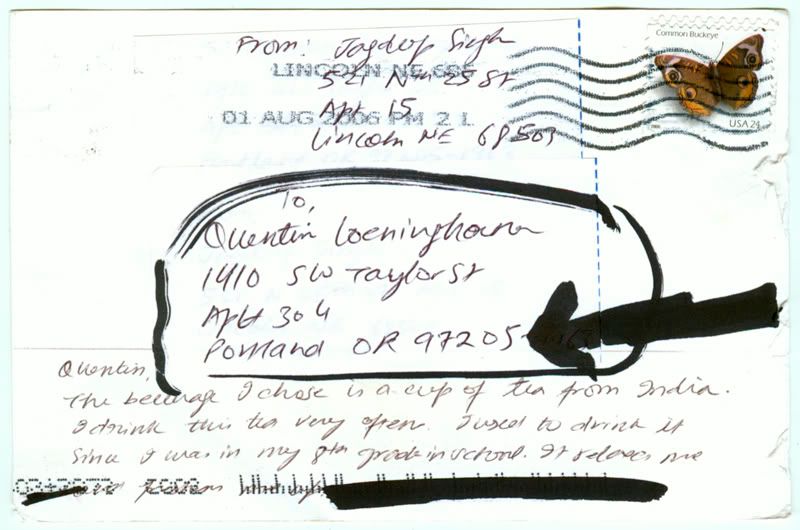 From: Jagdeep Singh
LINCOLN NE 685
521 N 25 St
Apt 15
01 AUG 2006 PM 2 L
Lincoln NE 68503
Common Buckeye
USA 24
To,
Quentin
1410 SW Taylor St
Apt 304
Portland OR 97205
Quentin,
The beverage I chose is a cup of tea from India.
I drink this tea very often. I used to drink it
Since I was in my 8th grade in school. It relaxes me